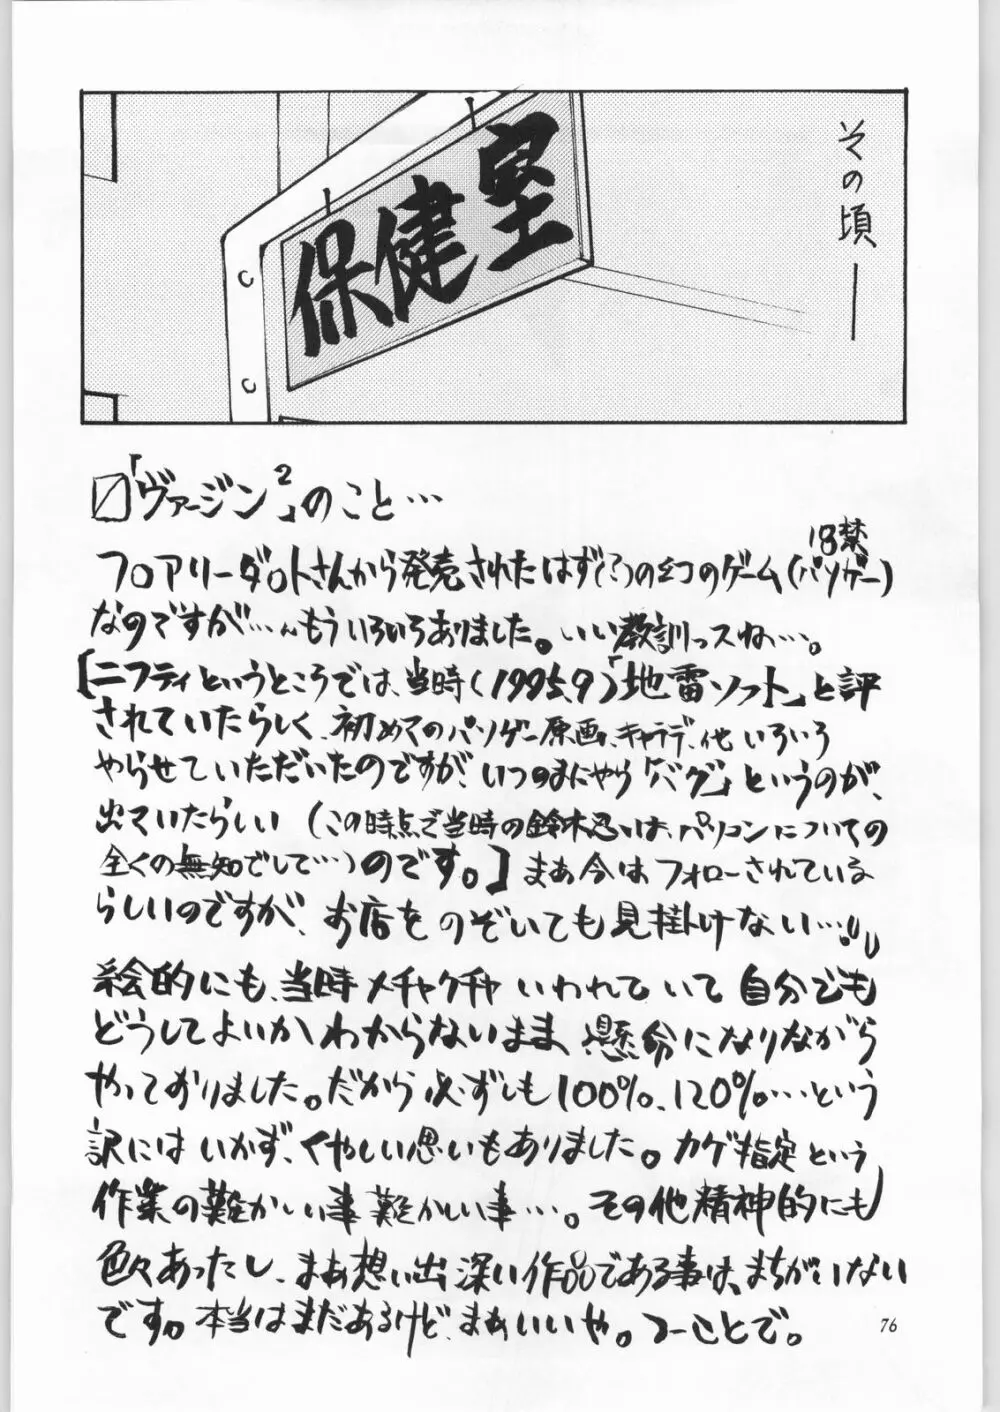 その頃―
保健室
「ヴァージン²」のこと…
18禁
フロアリーダットさんから発売されたはず(?)の幻のゲーム(パソゲー)
なのですが…。もういろいろありました。いい教訓っスね…。
[ニフティというところでは、当時(1995.9)「地雷ソフト」と評
されていたらしく、初めてのパソゲー原画、キャラデ、他いろいろ
やらせていただいたのですが、いつのまにやら「バグ」というのが、
出ていたらしい(この時点で当時の鈴木忍は、パソコンについての
全くの無知でして…)のです。]まあ今はフォローされている
らしいのですが、お店をのぞいても見掛けない…。
絵的にも、当時メチャクチャいわれていて自分でも
どうしてよいかわからないまま、懸命になりながら
やっておりました。だから必ずしも100%、120%…という
訳にはいかず、くやしい思いもありました。カゲ指定という
作業の難かしい事難かしい事…。その他精神的にも
色々あったし、まあ想い出深い作品である事は、まちがいない
です。本当はまだあるけど、まぁいいや。つーことで。
76